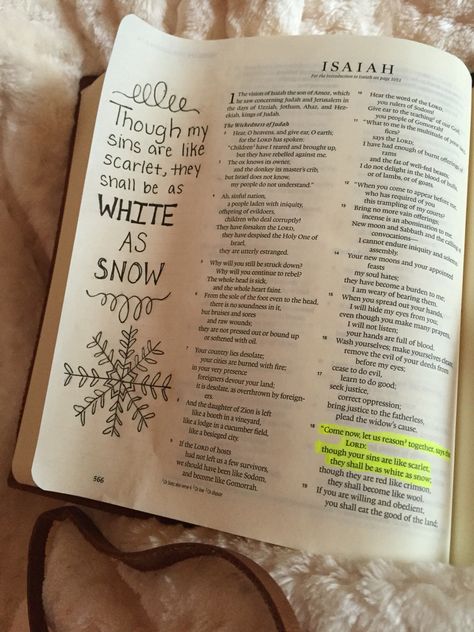 Though my
sins are like
scarlet, they
shall be as
WHITE
AS
SNOW
566
ISAIAH
For the introduction to Isaiah see page
1 The vision of Isaiah the son of Amoz, which
he saw concerning Judah and Jerusalem in
the days of Uzziah, Jotham, Ahaz, and Hez-
ekiah, kings of Judah.
The Wickedness of Judah
2 Hear, O heavens, and give ear, O earth;
for the LORD has spoken:
"Children have I reared and brought up,
but they have rebelled against me.
3 The ox knows its owner,
and the donkey its master's crib,
but Israel does not know,
my people do not understand."
4 Ah, sinful nation,
a people laden with iniquity,
offspring of evildoers,
children who deal corruptly!
They have forsaken the LORD,
they have despised the Holy One of
Israel,
they are utterly estranged.
5 Why will you still be struck down?
Why will you continue to rebel?
The whole head is sick,
and the whole heart faint.
6 From the sole of the foot even to the head,
there is no soundness in it,
but bruises and sores
and raw wounds;
they are not pressed out or bound up
or softened with oil.
7 Your country lies desolate;
your cities are burned with fire;
in your very presence
foreigners devour your land;
it is desolate, as overthrown by foreign-
ers.
8 And the daughter of Zion is left
like a booth in a vineyard,
like a lodge in a cucumber field,
like a besieged city.
9 If the LORD of hosts
had not left us a few survivors,
we should have been like Sodom,
and become like Gomorrah.
10 Hear the word of the LORD,
you rulers of Sodom!
Give ear to the teaching of our God,
you people of Gomorrah!
11 "What to me is the multitude of your
fices?
says the LORD;
I have had enough of burnt offerings of
rams
and the fat of well-fed beasts;
I do not delight in the blood of bulls,
or of lambs, or of goats.
12 "When you come to appear before me,
who has required of you
this trampling of my courts?
13 Bring no more vain offerings;
incense is an abomination to me.
New moon and Sabbath and the calling of
convocations—
I cannot endure iniquity and solemn
assembly.
14 Your new moons and your appointed
feasts
my soul hates;
they have become a burden to me;
I am weary of bearing them.
15 When you spread out your hands,
I will hide my eyes from you;
even though you make many prayers,
I will not listen;
your hands are full of blood.
16 Wash yourselves; make yourselves clean;
remove the evil of your deeds from
before my eyes;
cease to do evil,
17 learn to do good;
seek justice,
correct oppression;
bring justice to the fatherless,
plead the widow's cause.
18 "Come now, let us reason together, says the
LORD:
though your sins are like scarlet,
they shall be as white as snow;
though they are red like crimson,
they shall become like wool.
19 If you are willing and obedient,
you shall eat the good of the land;